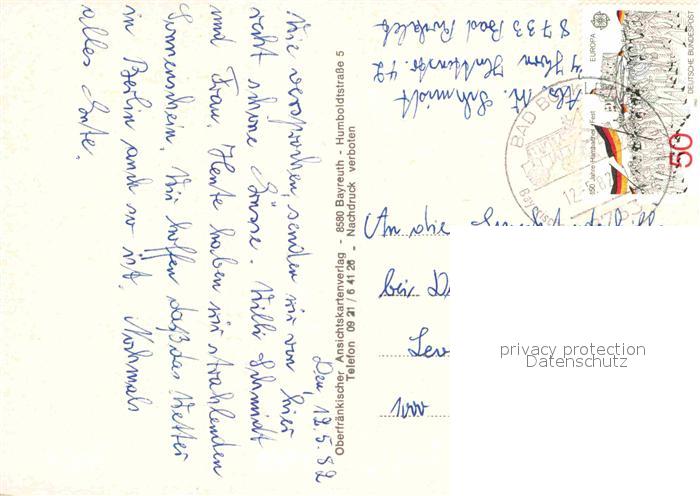 Den, 12.5.82
Wie versprochen, senden wir von hier
recht schöne Grüsse. Willi Schmidt
und Frau. Heute haben wir strahlenden
Sonnenschein. Wir hoffen daß das Wetter
in Berlin auch so ist. Nochmals
alles Gute.
Oberfränkischer Ansichtskartenverlag - 8580 Bayreuth - Humboldtstraße 5
Telefon 09 21 / 6 41 26 - Nachdruck verboten
Abs. W. Schmidt
8733 Bad
EUROPA
150 Jahre Hambacher Fest
DEUTSCHE BUNDESPOST
50
BAD
12.
An die
bei
1000
privacy protection
Datenschutz